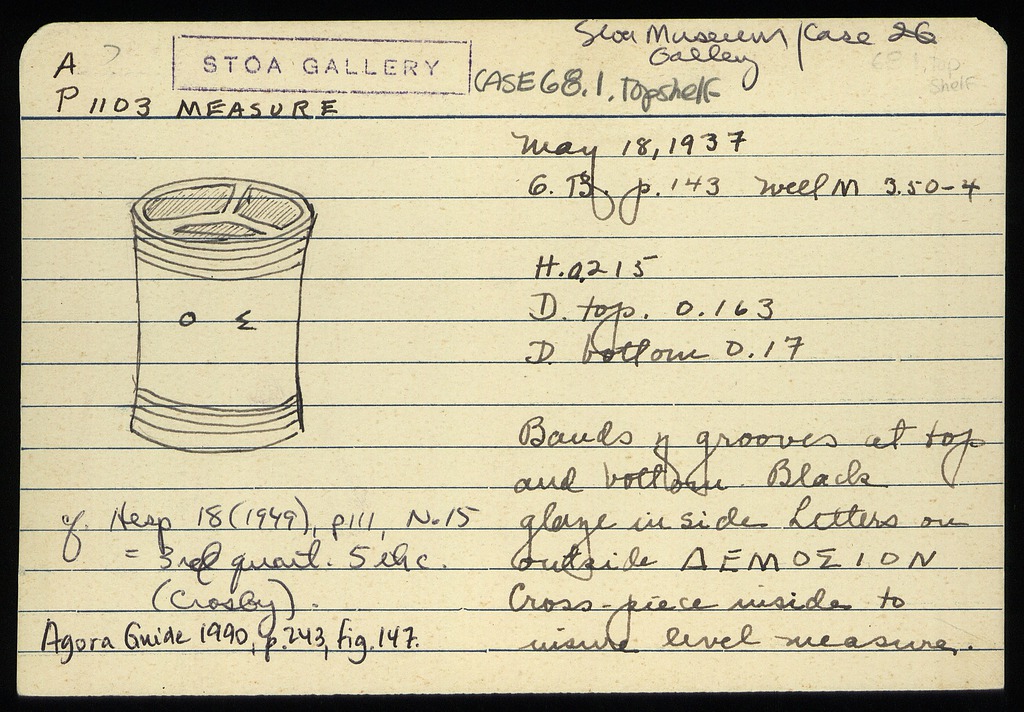 A
STOA GALLERY
Stoa Museum/Case 26
Gallery
CASE 68.1, Topshelf
68.1, Top
Shelf
P 1103 MEASURE
May 18, 1937
p. 143 Well M 3.50-4
H. 0.215
D. top. 0.163
D bottom 0.17
Ο Σ
Bands of grooves at top
and bottom. Black
glaze inside Letters on
outside ΔΕΜΟΣΙΟΝ
Cross-piece inside to
insure level measure.
cf. Hesp 18 (1949), p 111, No. 15
= 3rd quart. 5th c.
(Crosby).
Agora Guide 1990, p. 243, fig. 147.